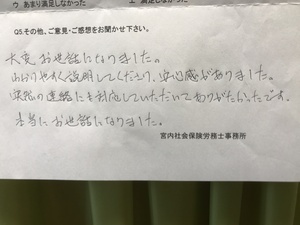 ウ あまり満足しなかった エ 満足しなかった
Q5.その他、ご意見・ご感想をお聞かせ下さい。
大変お世話になりました。
わかりやすく説明してくださり、安心感がありました。
突然の連絡にも対応していただいてありがたかったです。
本当にお世話になりました。
宮内社会保険労務士事務所